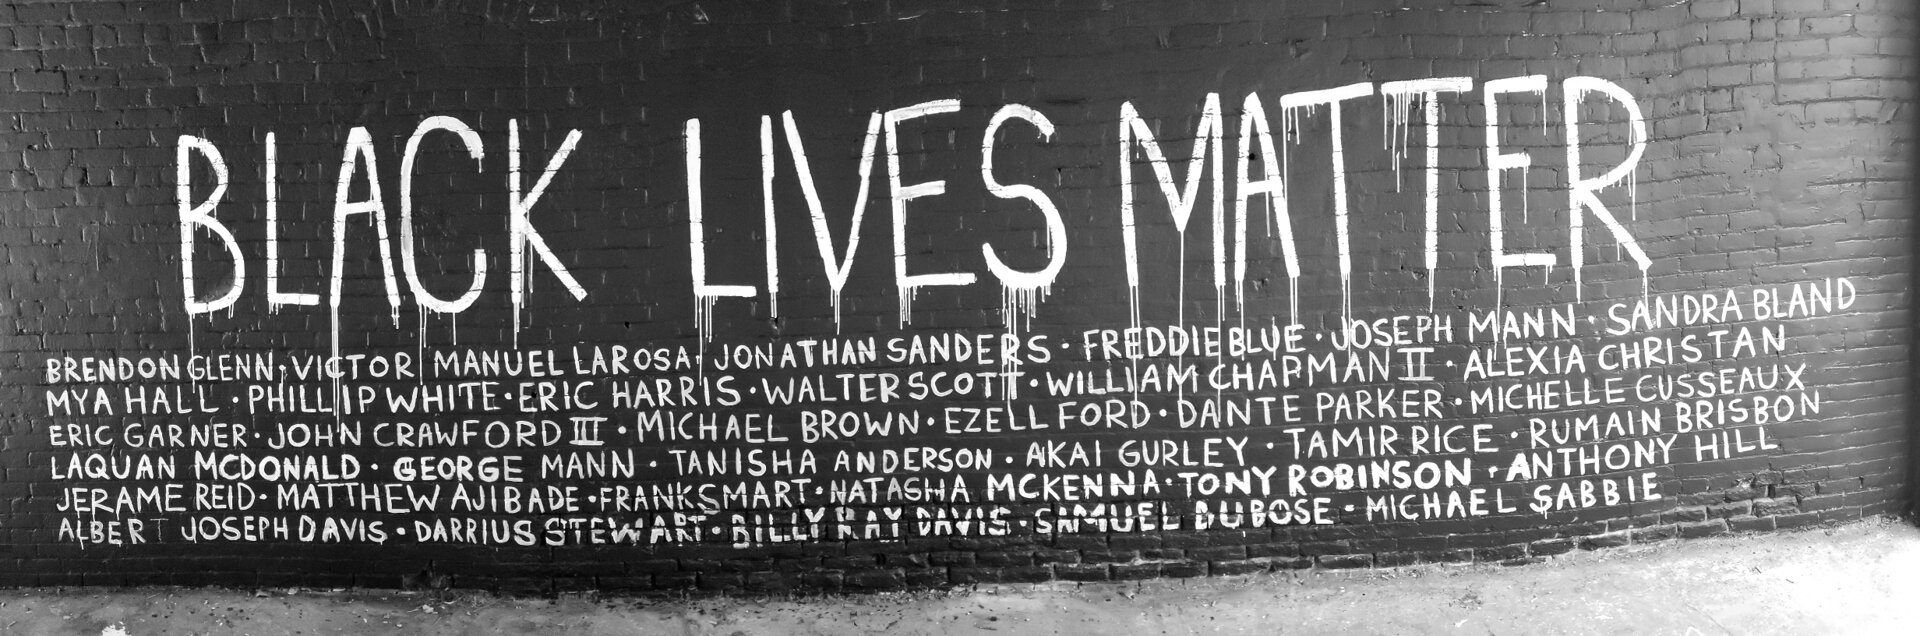 BLACK LIVES MATTER
BRENDON GLENN · VICTOR MANUEL LAROSA · JONATHAN SANDERS · FREDDIE BLUE · JOSEPH MANN · SANDRA BLAND
MYA HALL · PHILLIP WHITE · ERIC HARRIS · WALTER SCOTT · WILLIAM CHAPMAN II · ALEXIA CHRISTAN
ERIC GARNER · JOHN CRAWFORD III · MICHAEL BROWN · EZELL FORD · DANTE PARKER · MICHELLE CUSSEAUX
LAQUAN MCDONALD · GEORGE MANN · TANISHA ANDERSON · AKAI GURLEY · TAMIR RICE · RUMAIN BRISBON
JERAME REID · MATTHEW AJIBADE · FRANK SMART · NATASHA MCKENNA · TONY ROBINSON · ANTHONY HILL
ALBERT JOSEPH DAVIS · DARRIUS STEWART · BILLY RAY DAVIS · SAMUEL DUBOSE · MICHAEL SABBIE